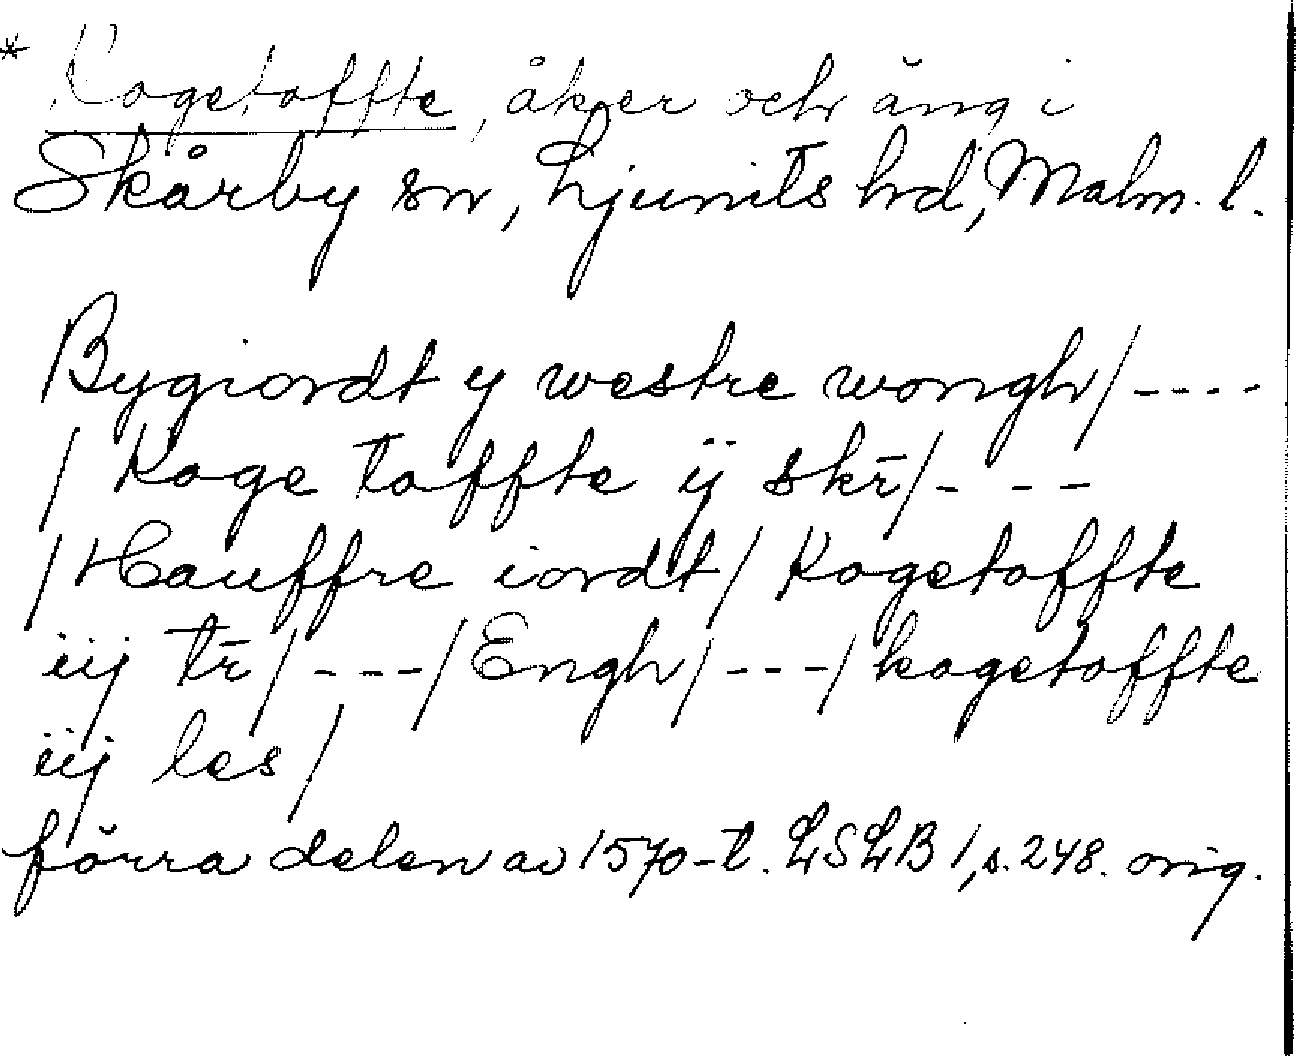 * Kogetoffte, åker och äng i
Skårby sn, Ljunits hd, Malm. l.
Bygiordt y westre wongh/----
/ Koge toffte ÿ skr̄/- - -
/ Hauffre iordt/ Kogetoffte
iij tr̄/---/Engh/---/kogetoffte
iij les/
förra delen av 1570-t. LSLB 1, s. 248. orig.